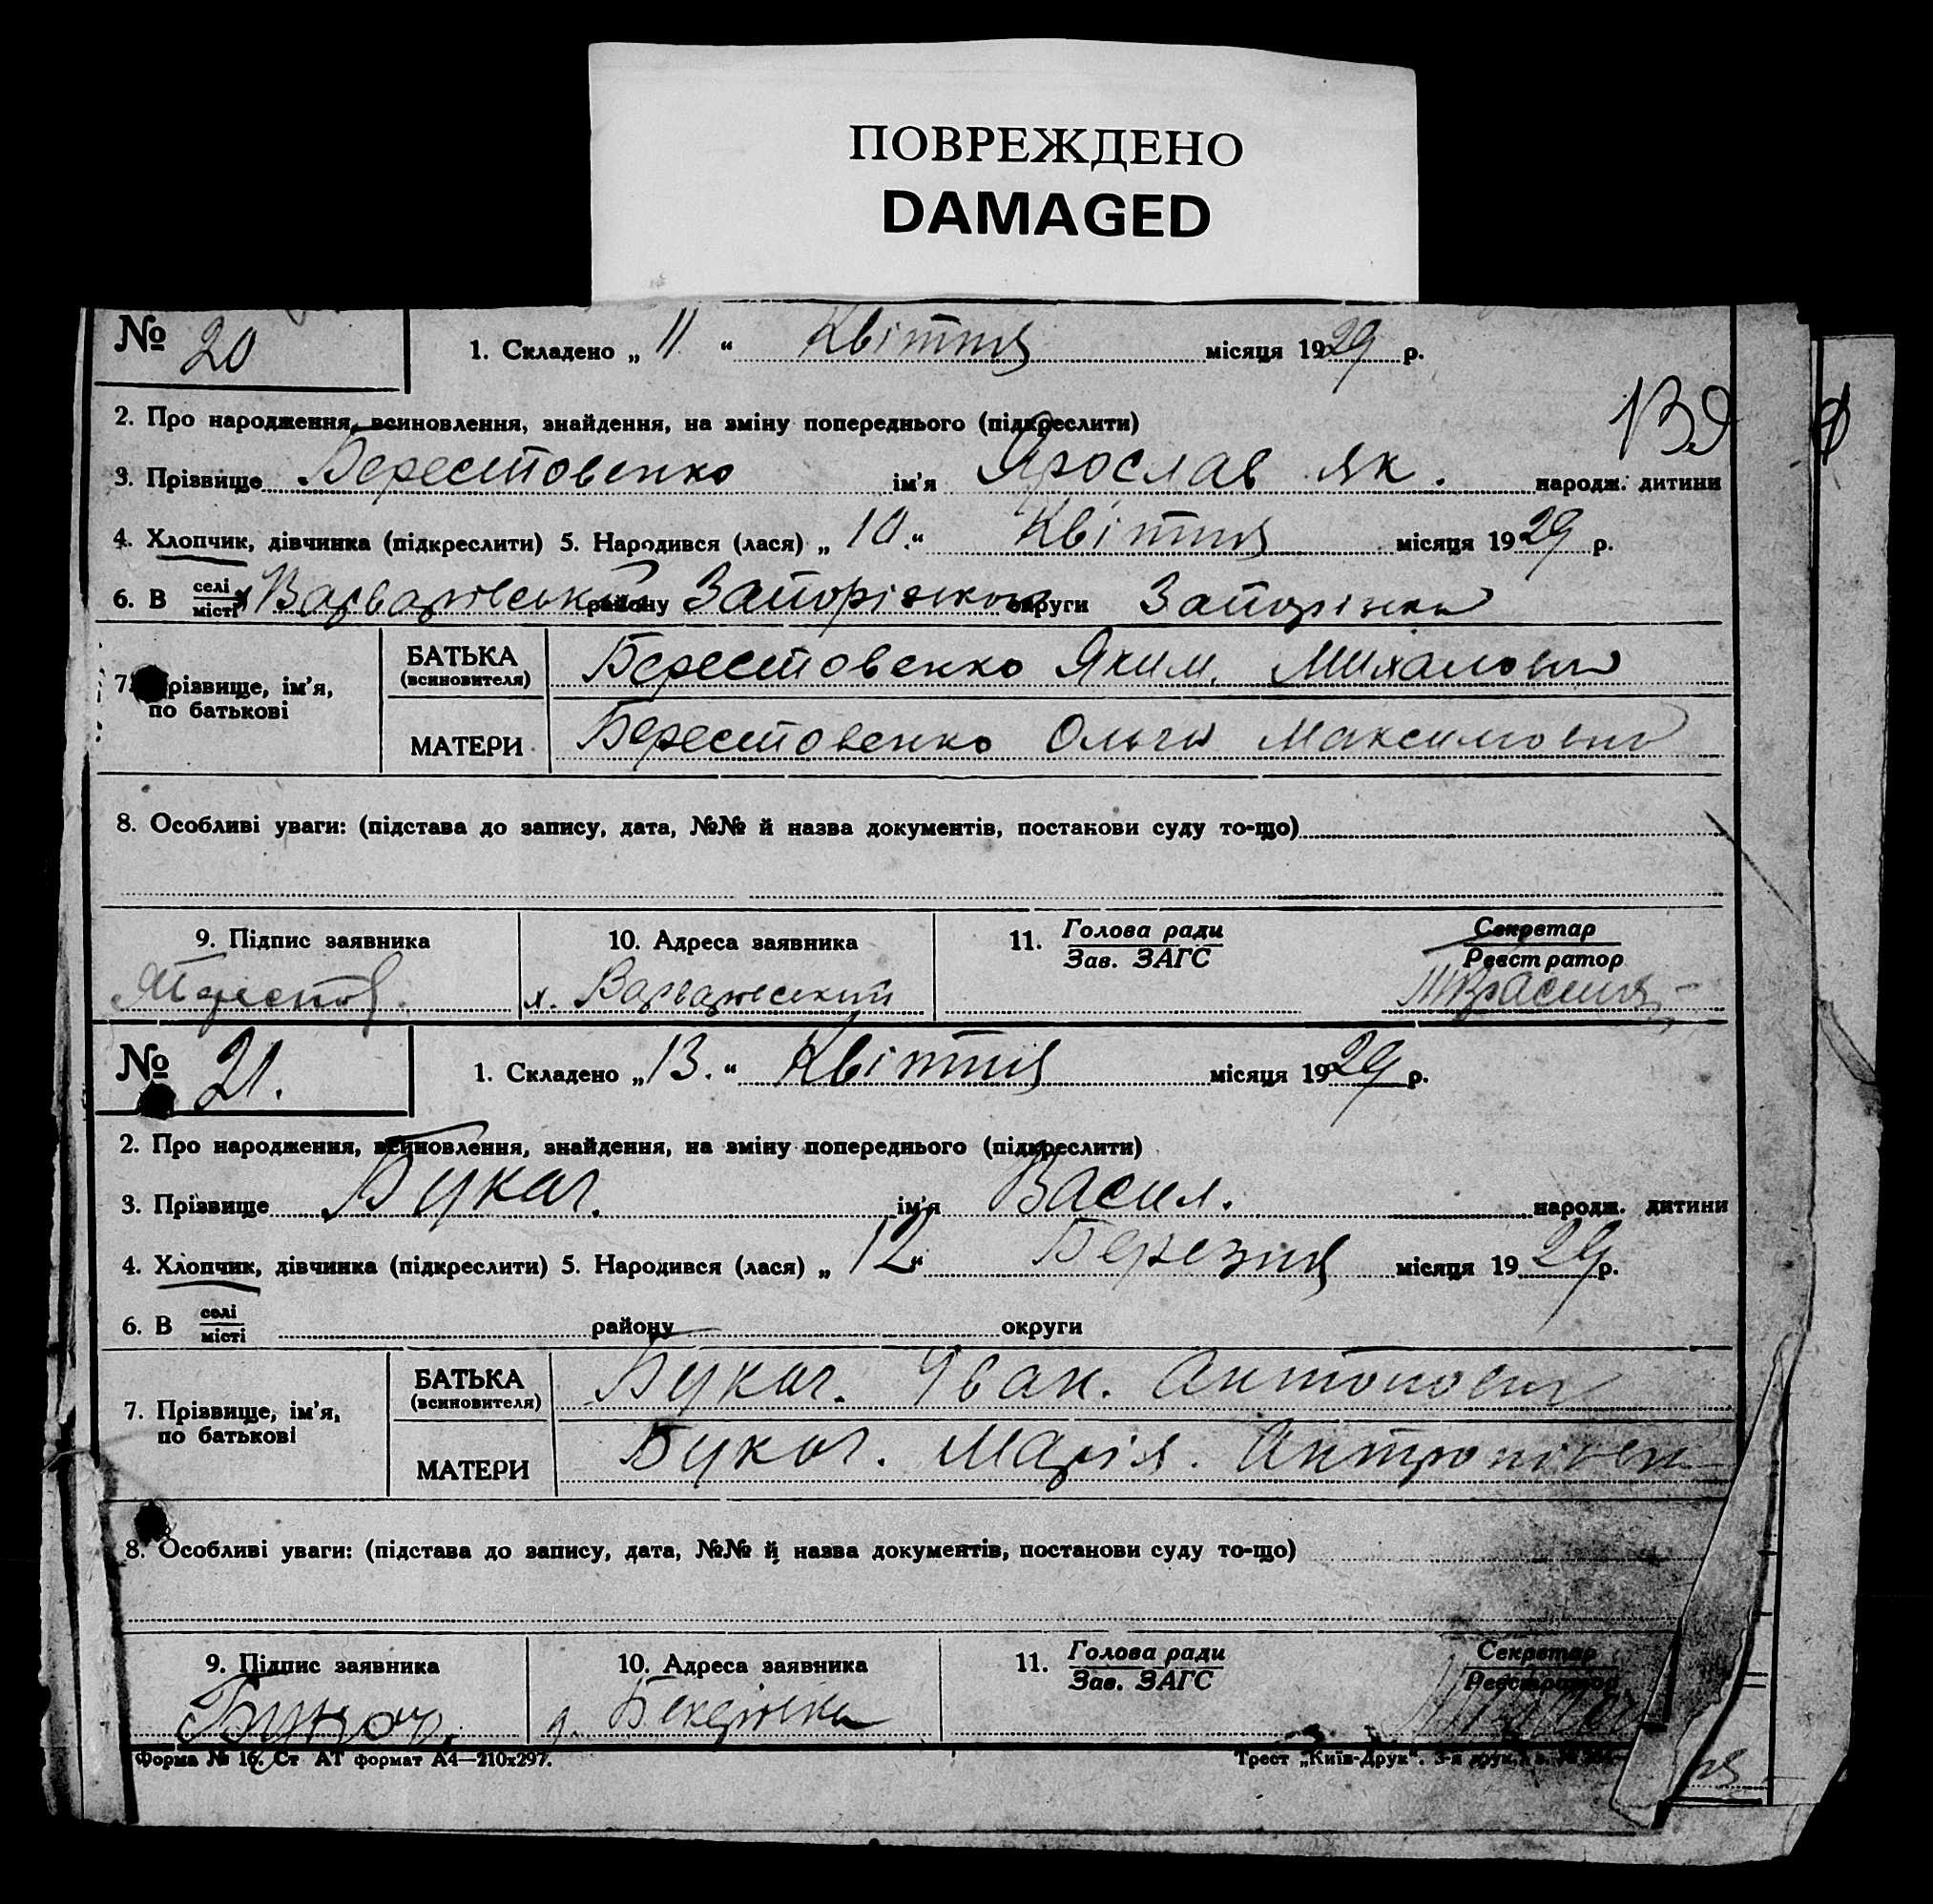 ПОВРЕЖДЕНО
DAMAGED
№ 20
1. Складено „ 11 “ Квітня місяця 1929 р.
2. Про народження, всиновлення, знайдення, на зміну попереднього (підкреслити)
139
3. Прізвище Берестовенко ім'я Ярослав Як. народж. дитини
4. Хлопчик, дівчинка (підкреслити) 5. Народився (лася) „ 10. “ Квітня місяця 1929 р.
6. В селі місті х Варварівський району Запорізького округи Запоріжжя
7. Прізвище, ім'я, по батькові
БАТЬКА (всиновителя) Берестовенко Яким. Михалович
МАТЕРИ Берестовенко Ольга Максимовна
8. Особливі уваги: (підстава до запису, дата, №№ й назва документів, постанови суду то-що)
9. Підпис заявника
10. Адреса заявника х. Варварівський
11. Голова ради Зав. ЗАГС
Секретар Реєстратор
№ 21.
1. Складено „ 13. “ Квітня місяця 1929 р.
2. Про народження, всиновлення, знайдення, на зміну попереднього (підкреслити)
3. Прізвище Букач. ім'я Васил. народж. дитини
4. Хлопчик, дівчинка (підкреслити) 5. Народився (лася) „ 12 “ Березня місяця 1929 р.
6. В селі місті району округи
7. Прізвище, ім'я, по батькові
БАТЬКА (всиновителя) Букач. Іван. Антонович
МАТЕРИ Букач. Марія.
8. Особливі уваги: (підстава до запису, дата, №№ й назва документів, постанови суду то-що)
9. Підпис заявника
10. Адреса заявника
11. Голова ради Зав. ЗАГС
Секретар Реєстратор
Форма № 16. Ст АТ формат А4—210x297.
Трест „Київ-Друк“. 3-я друк.